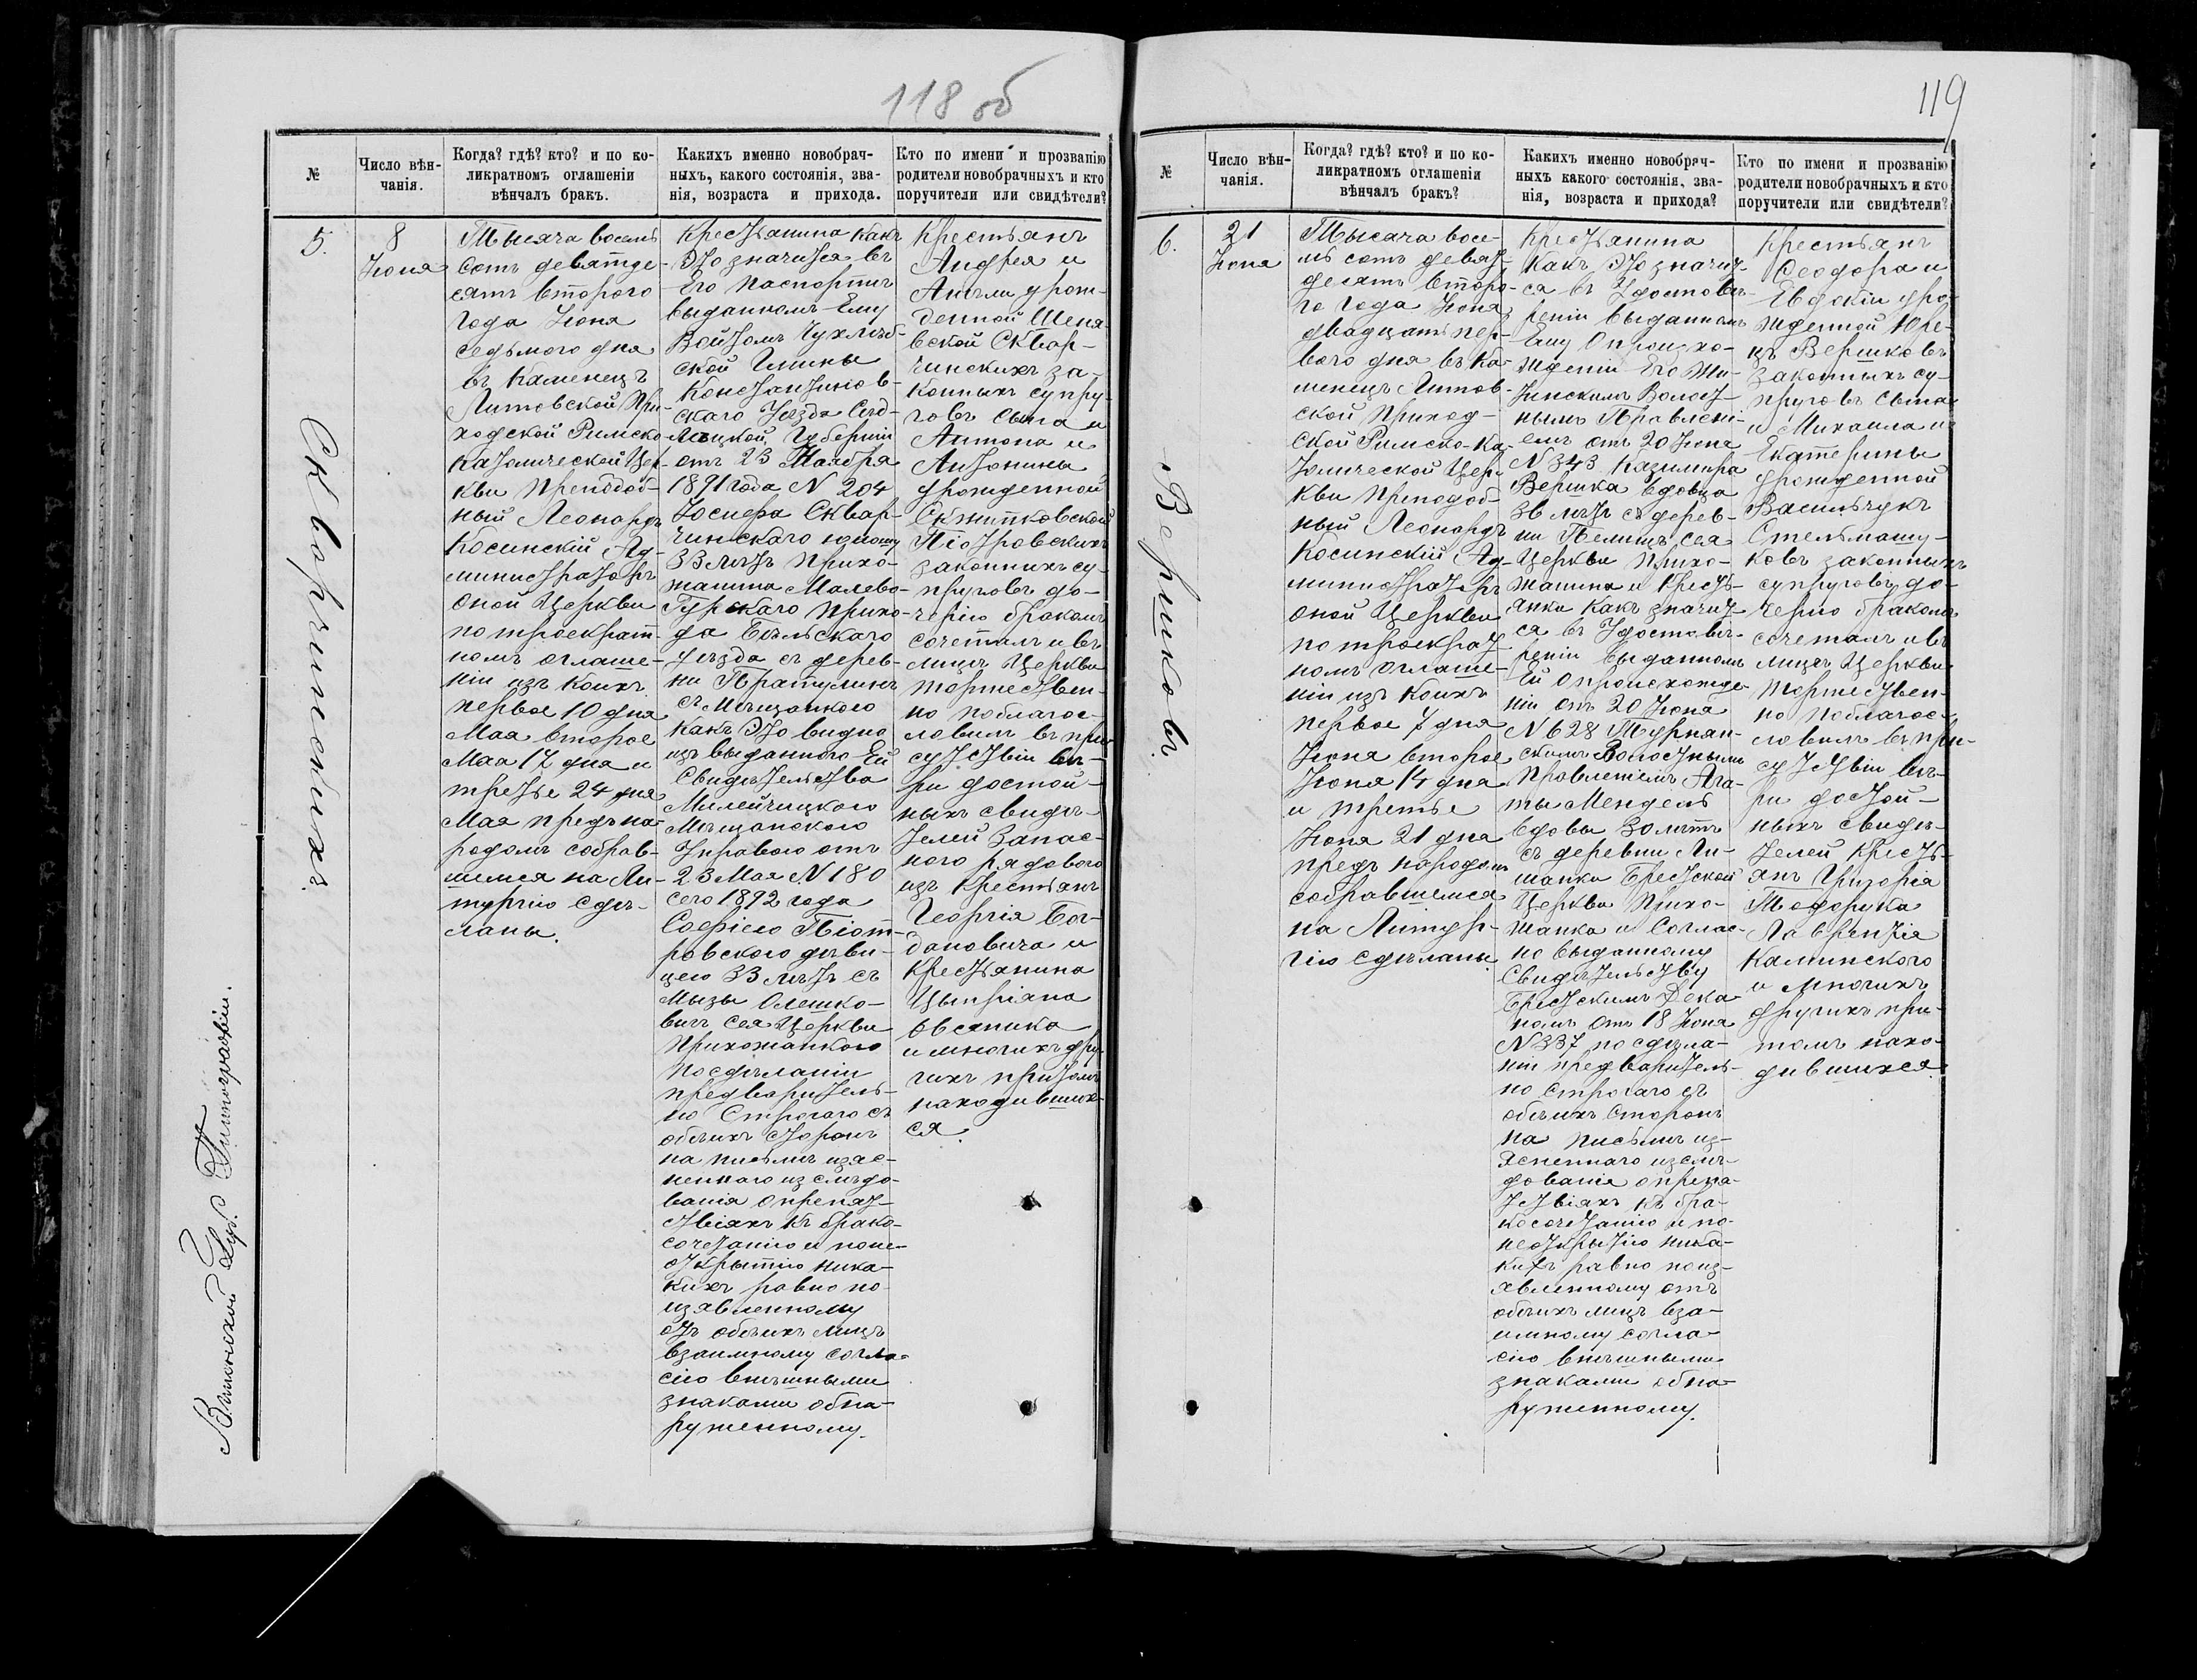 118 об
№
Число вѣн-
чанія.
Когда? гдѣ? кто? и по ко-
ликратномъ оглашеніи
вѣнчалъ бракъ.
Какихъ именно новобрач-
ныхъ, какого состоянія, зва-
нія, возраста и прихода.
Кто по имени и прозванію
родители новобрачныхъ и кто
поручители или свидѣтели?
5.
Скварчинскихъ
8
Іюня
Тысяча восемь
сотъ девятьде-
сятъ второго
года Іюня
седьмого дня
въ Каменецъ
Литовской При-
ходской Римско
Католической Цер-
кви Преподоб-
ный Леонардъ
Косинскій Ад-
министраторъ
оной Церкви
по троекрат-
номъ оглаше-
ніи изъ коихъ
первое 10 дня
Мая второе
Мая 17 дня и
третье 24 дня
Мая предъ на-
родомъ собрав-
шимся на Ли-
тургію сдѣ-
ланы.
Крестьянина какъ
Это значится въ
Его Паспортѣ
выданномъ Ему
Войтомъ Чухлѣб-
ской Гмины
Константинов-
скаго Уѣзда Сѣд-
лецкой Губерніи
отъ 23 Ноября
1891 года N 204
Іосифа Сквар-
чинскаго юношу
33 лѣтъ Прихо-
жанина Малево-
Гурскаго прихо-
да Бѣльскаго
уѣзда съ дерев-
ни Пратулинъ
съ Мѣщанкою
какъ Это видно
изъ выданного Ей
Свидѣтельства
Милейчицкою
Мѣщанскою
Управою отъ
23 Мая N 180
сего 1892 года
Софіею Піот-
ровскою дѣви-
цею 33 лѣтъ съ
Мызы Олешко-
вичъ сея Церкви
Прихожанкою
по сдѣланіи
предворитель-
но Строгаго съ
обѣихъ сторонъ
на письмѣ изяс-
неннаго изслѣдо-
ванія о препят-
ствіяхъ къ брако-
сочетанію и поне-
открытію ника-
кихъ равно по
изявленному
отъ обѣихъ лицъ
взаимному согла-
сію внѣшными
знаками обна-
руженному.
Крестьянъ
Андрея и
Анѣли урож-
денной Шеня-
вской Сквар-
чинскихъ за-
конныхъ супру-
говъ сына и
Антона и
Антонины
урожденной
Скжипковской
Піотровскихъ
законныхъ су-
пруговъ до-
черію бракомъ
сочеталъ и въ
лицѣ Церкви
торжествен-
но поблагос-
ловилъ въ при-
сутствіи вѣ-
ри достой-
ныхъ свидѣ-
телей Запас-
ного рядового
изъ Крестьянъ
Георгія Бог-
дановича и
Крестьянина
Цыпріяна
Овсяника
и многихъ дру-
гихъ притомъ
находивших-
ся.
Виленской Губ. Типографіи.
119
№
Число вѣн-
чанія.
Когда? гдѣ? кто? и по ко-
ликратномъ оглашеніи
вѣнчалъ бракъ?
Какихъ именно новобрач-
ныхъ какого состоянія, зва-
нія, возраста и прихода?
Кто по имени и прозванію
родители новобрачныхъ и кто
поручители или свидѣтели?
6.
Вершковъ.
21
Іюня
Тысяча восе-
мь сотъ девят-
десятъ второ-
го года Іюня
двадцать пер-
вого дня въ Ка-
менецъ Литов-
ской Приход-
ской Римско-Ка-
толической Цер-
кви Преподоб-
ный Леонардъ
Косинскій Ад-
министраторъ
оной Церкви
по троекрат-
номъ оглаше-
ніи изъ коихъ
первое 7 дня
Іюня второе
Іюня 14 дня
и третье
Іюня 21 дня
предъ народомъ
собравшемся
на Литур-
гію сдѣланы
Крестьянина
Какъ Это значит-
ся въ Удостовѣ-
реніи выданномъ
Ему о происхо-
жденіи Его
Волост-
нымъ Правлені-
емъ отъ 20 Іюня
N 343 Казимира
Вершка вдовца
36 лѣтъ съ дерев-
ни Пелищъ сея
Церкви прихо-
жанина и Кресть-
янки какъ значит-
ся въ Удостовѣ-
реніи выданномъ
Ей о происхожде-
ніи отъ 20 Іюня
N 628 Турнан-
скимъ Волостнымъ
Правленіемъ Ага-
ты Мендель
вдовы 30 лѣтъ
съ деревни Ли-
шанки Брестской
Церкви прихо-
жанка и Соглас-
но выданному
Свидѣтельству
Брестскимъ Дека-
номъ отъ 18 Іюня
N 337 по сдѣла-
ніи предварітель-
но строгаго съ
обѣихъ сторонъ
на письмѣ из-
ясненнаго изслѣ-
дованія о препя-
тствіяхъ къ бра-
косочетанію и по
неоткрытію ника-
кихъ равно поиз-
явленному отъ
обѣихъ лицъ вза-
имному согла-
сію внѣшными
знаками обна-
руженному.
Крестьянъ
Ѳеодора и
Евдокіи уро-
жденной Юре-
цъ Вершковъ
законныхъ су-
пруговъ сына
и Михаила и
Екатерины
урожденной
Васильчукъ
Стельмашу-
ковъ законныхъ
супруговъ до-
черію бракомъ
сочеталъ и въ
лицѣ Церкви
торжествен-
но поблагос-
ловилъ въ при-
сутствіи вѣ-
ри достой-
ныхъ свидѣ-
телей Кресть-
янъ Григорія
Тодорука
Лаврентія
Калинского
и многихъ
другихъ при-
томъ нахо-
дившихся.